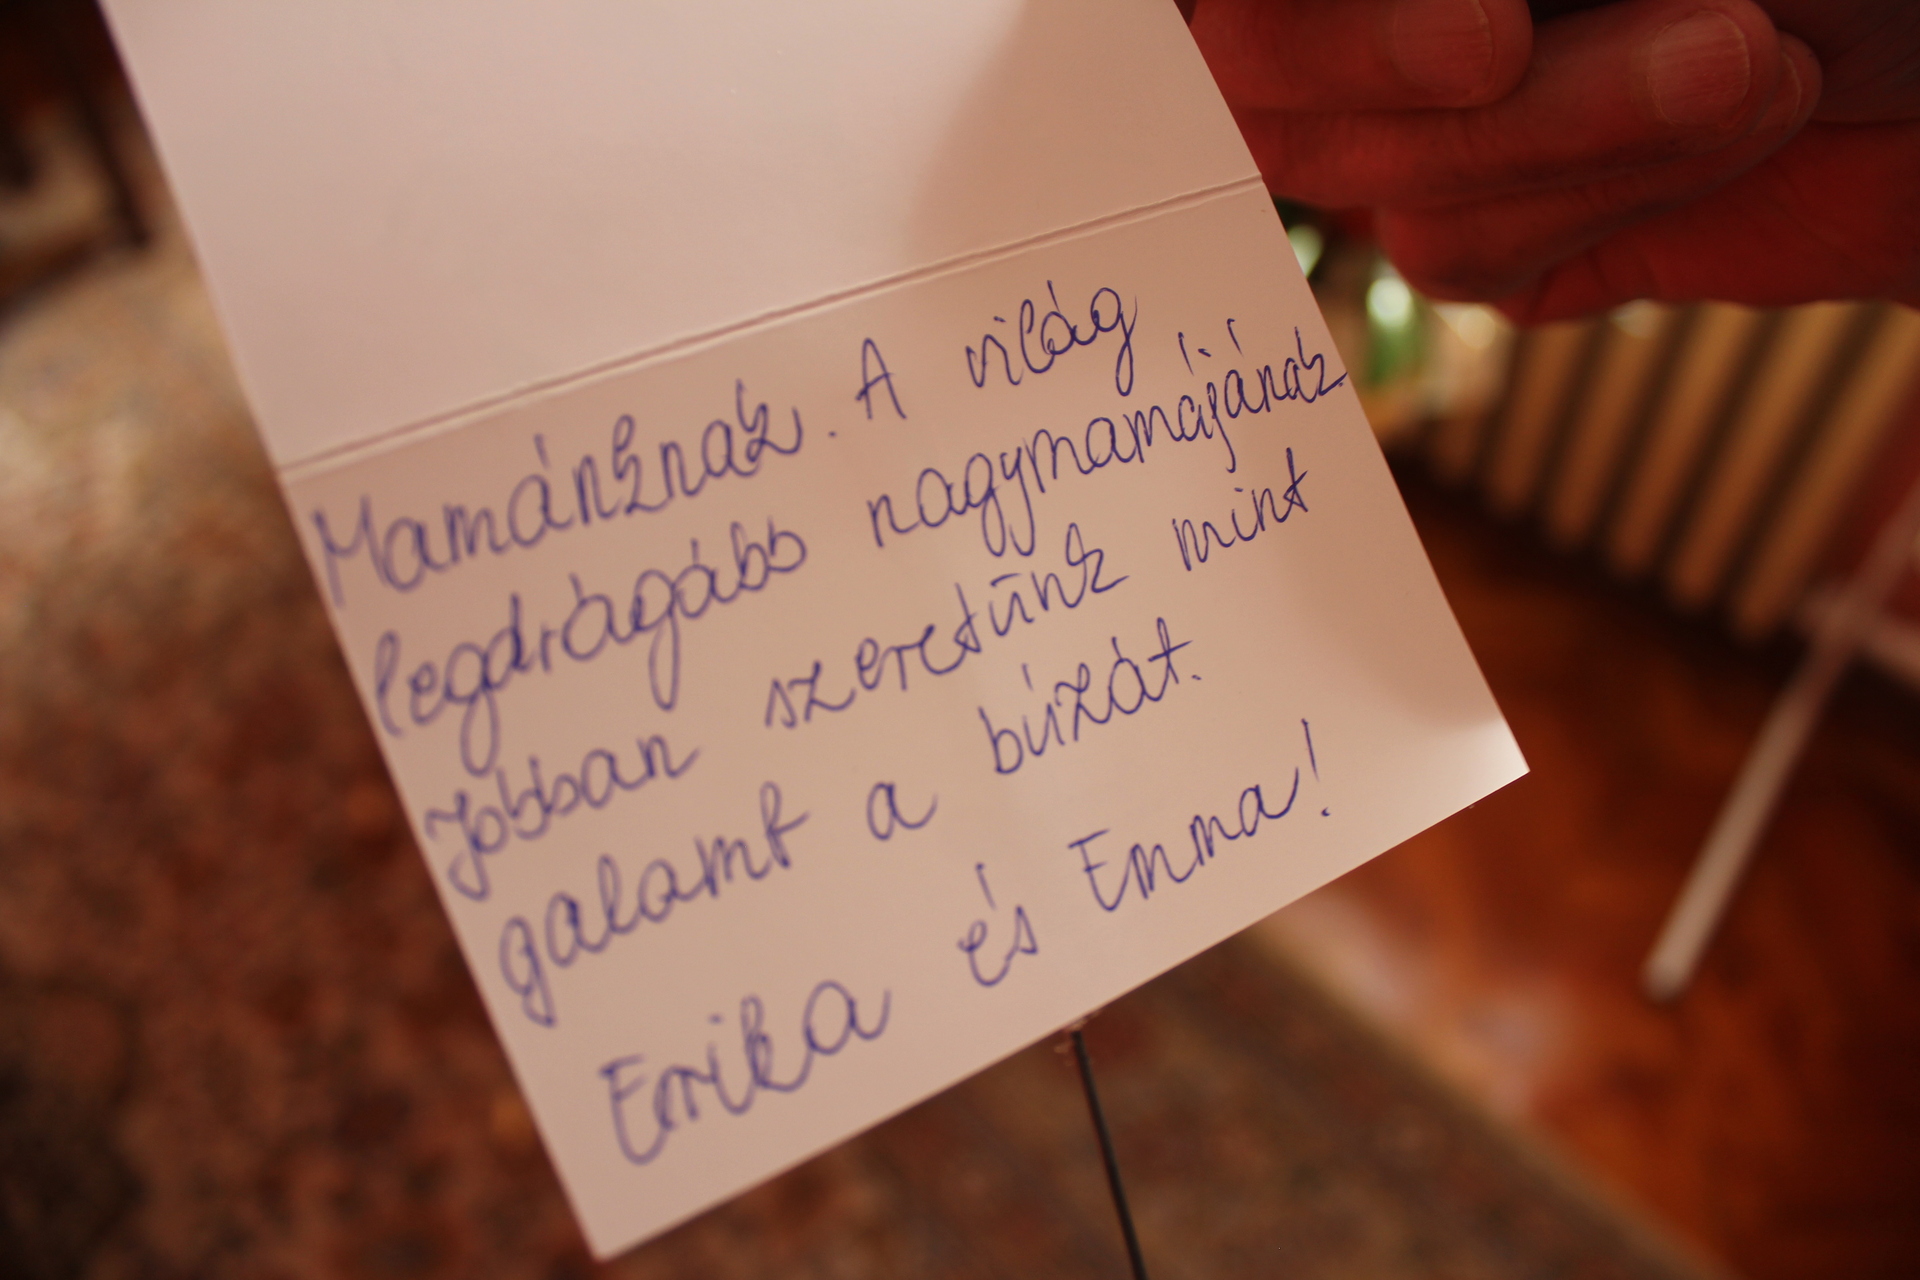 Mamánknak. A világ
legdrágább nagymamájának
Jobban szeretünk mint
galamb a búzát.
Erika és Emma!